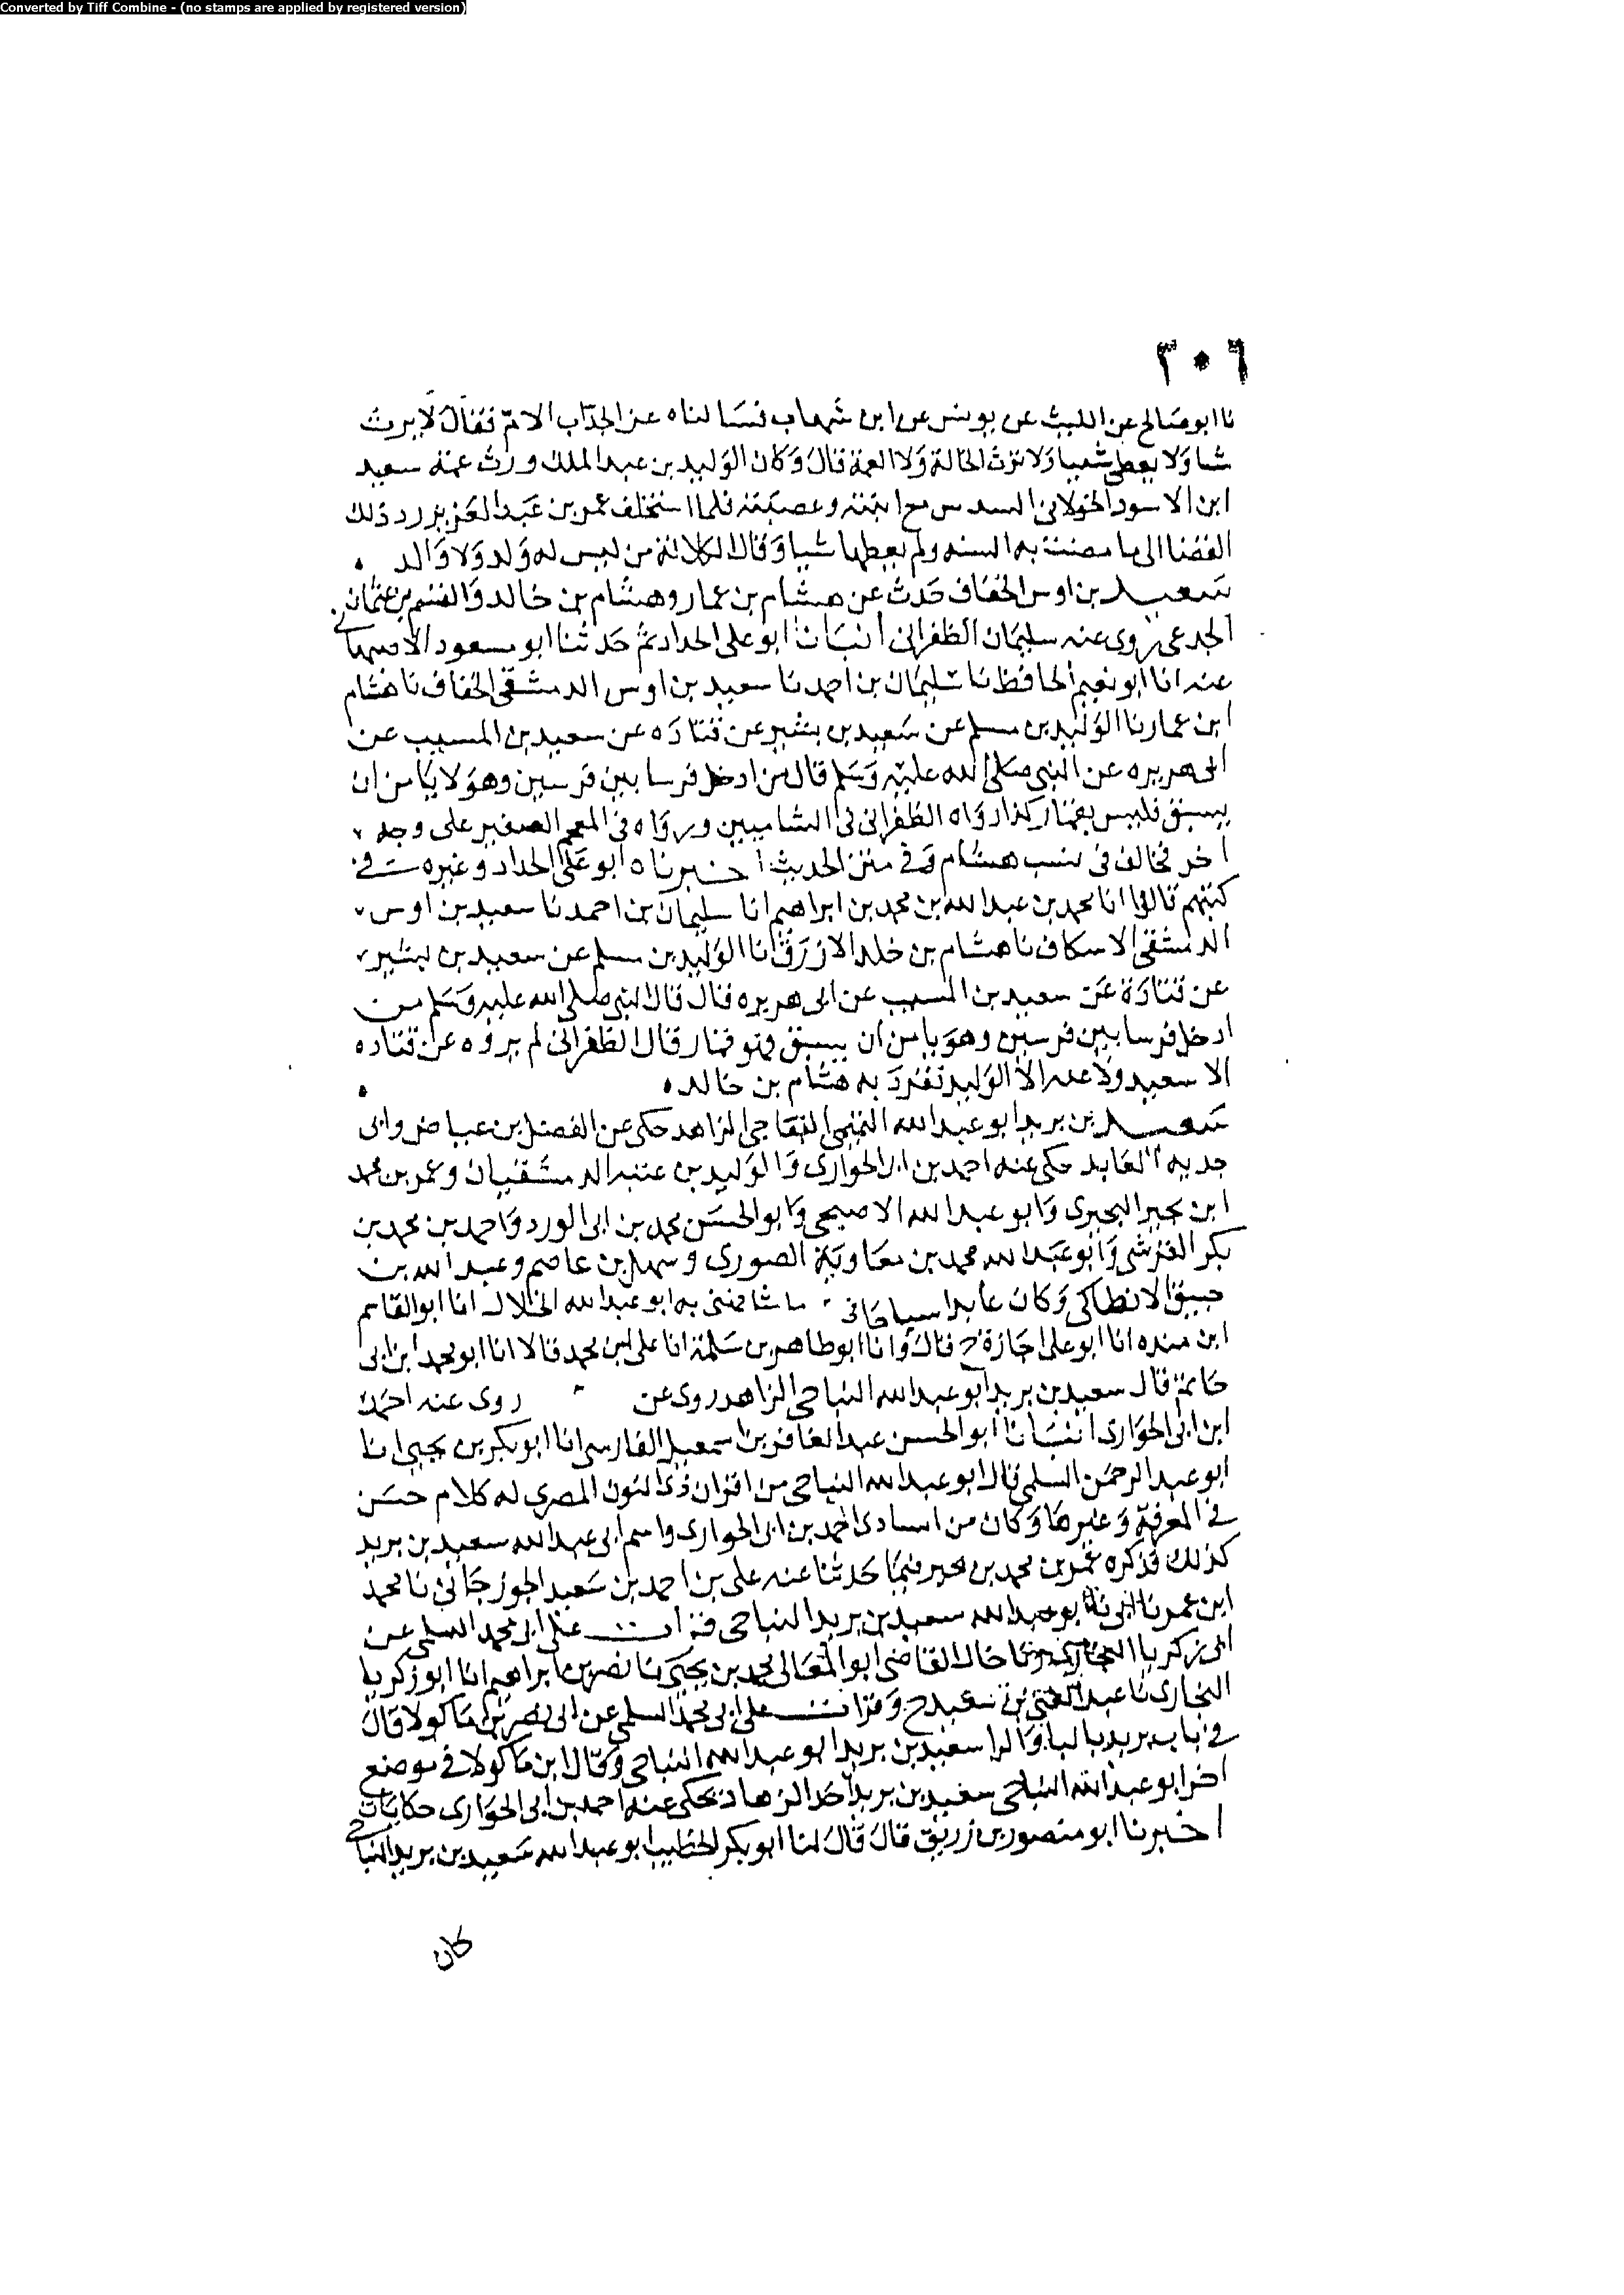 Converted by Tiff Combine - (no stamps are applied by registered version)
٣٠٦
نا ابو صالح عن الليث عن يونس عن ابن شهاب فسالناه عن الجد اب الام فقال لا يرث
شيا ولا يعطى شيا ولا ترث الخالة ولا العمة قال وكان الوليد بن عبد الملك ورث عمة سعيد
ابن الاسود الخولاني السدس مع ابنته وعصبته فلما استخلف عمر بن عبد العزيز رد ذلك
القضا الى ما مضت به السنه ولم يعطها شيا وقال الكلالة من ليس له ولد ولا والد
سعيد بن اوس الخفاف حدث عن هشام بن عمار وهشام بن خالد والقسم بن عثمان
الجوعي روى عنه سليمان الطبراني انبانا ابو علي الحداد ثم حدثنا ابو مسعود الاصبهاني
عنه انا ابو نعيم الحافظ نا سليمان بن احمد نا سعيد بن اوس الدمشقي الخفاف نا هشام
ابن عمار نا الوليد بن مسلم عن سعيد بن بشير عن قتاده عن سعيد بن المسيب عن
ابي هريره عن النبي صلى الله عليه وسلم قال من ادخل فرسا بين فرسين وهو لا يامن ان
يسبق فليس بقمار كذا رواه الطبراني في الشاميين ورواه في المعجم الصغير على وجه
اخر فخالف في نسب هشام وفي متن الحديث اخبرناه ابو علي الحداد وغيره في
كتبهم قالوا انا محمد بن عبد الله بن محمد بن ابراهيم انا سليمان بن احمد نا سعيد بن اوس
الدمشقي الاسكاف نا هشام بن خلد الازرق نا الوليد بن مسلم عن سعيد بن بشير
عن قتادة عن سعيد بن المسيب عن ابي هريره قال قال النبي صلى الله عليه وسلم من
ادخل فرسا بين فرسين وهو يامن ان يسبق فهو قمار قال الطبراني لم يروه عن قتاده
الا سعيد ولا عنه الا الوليد تفرد به هشام بن خالد
سعيد بن بريد ابو عبد الله التميمي النباجي الزاهد حكى عن الفضيل بن عياض وابي
خزيمه العابد حكى عنه احمد بن ابي الحواري والوليد بن عتبه الدمشقيان وعمر بن محمد
ابن بجير البجيري وابو عبد الله الاصبحي وابو الحسن محمد بن ابي الورد واحمد بن محمد بن
بكر القرشي وابو عبد الله محمد بن معاوية الصوري وسهل بن عاصم وعبد الله بن
خبيق الانطاكي وكان عابدا سياحا في ما شافهني به ابو عبد الله الخلال انا ابو القاسم
ابن منده انا ابو علي اجازة ح قال وانا ابو طاهر بن سلمة انا علي بن محمد قالا انا ابو محمد ابن ابي
حاتم قال سعيد بن بريد ابو عبد الله النباجي الزاهد روى عن روى عنه احمد
ابن ابي الحواري انبانا ابو الحسن عبد الغافر بن اسمعيل الفارسي انا ابو بكر بن يحيى انا
ابو عبد الرحمن السلمي قال ابو عبد الله النباجي من اقران ذي النون المصري له كلام حسن
في المعرفة وغيرها وكان من استاذي احمد بن ابي الحواري واسم ابي عبد الله سعيد بن بريد
كذلك ذكره عمر بن محمد بن بجير فيما حدثنا عنه علي بن احمد بن سعيد الجوزجاني نا محمد
ابن عمر نا ابي نا ابو عبد الله سعيد بن بريد النباجي قرات على ابي محمد السلمي عن
ابي زكريا البخاري ونا خال القاضي ابو المعالي محمد بن يحيى نا نصر بن ابراهيم انا ابو زكريا
البخاري نا عبد الغني بن سعيد ح وقرات على ابي محمد السلمي عن ابي نصر بن ماكولا قال
في باب بريد بالبا والرا سعيد بن بريد ابو عبد الله النباجي وقال ابن ماكولا في موضع
اخر ابو عبد الله النباجي سعيد بن بريد احد الزهاد يحكى عنه احمد بن ابي الحواري حكايات
اخبرنا ابو منصور بن زريق قال قال لنا ابو بكر الخطيب ابو عبد الله سعيد بن بريد النباجي
كان